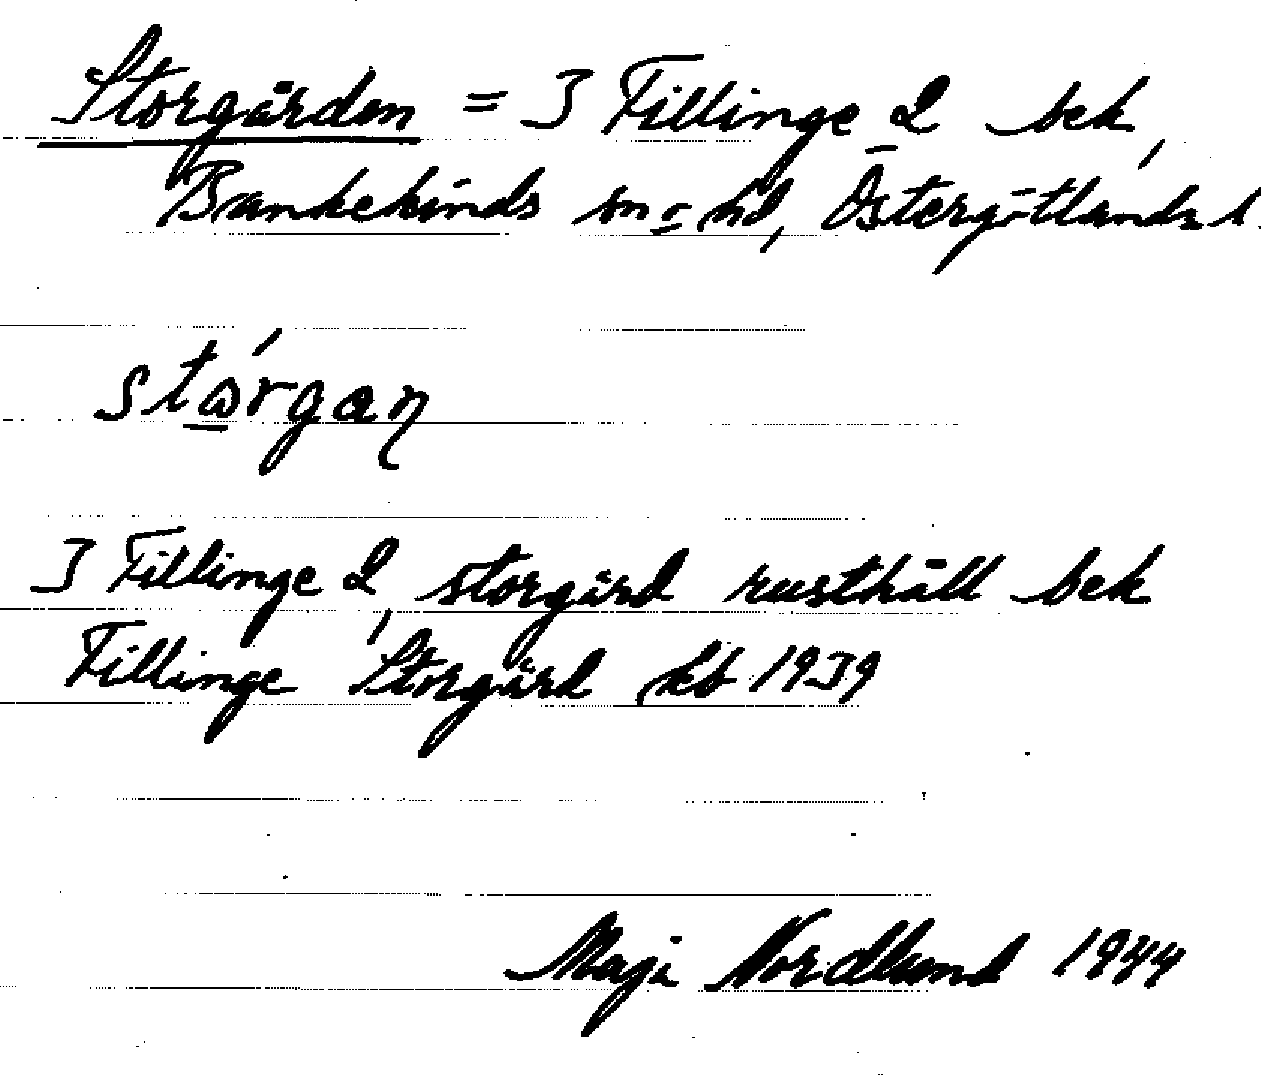 Storgården = J Fillinge 2 bek,
Bankekinds sn o hd, Östergötlands l.
J Fillinge 2, storgård rusthåll bek
Fillinge Storgård kb 1939
Maja Nordlund 1944